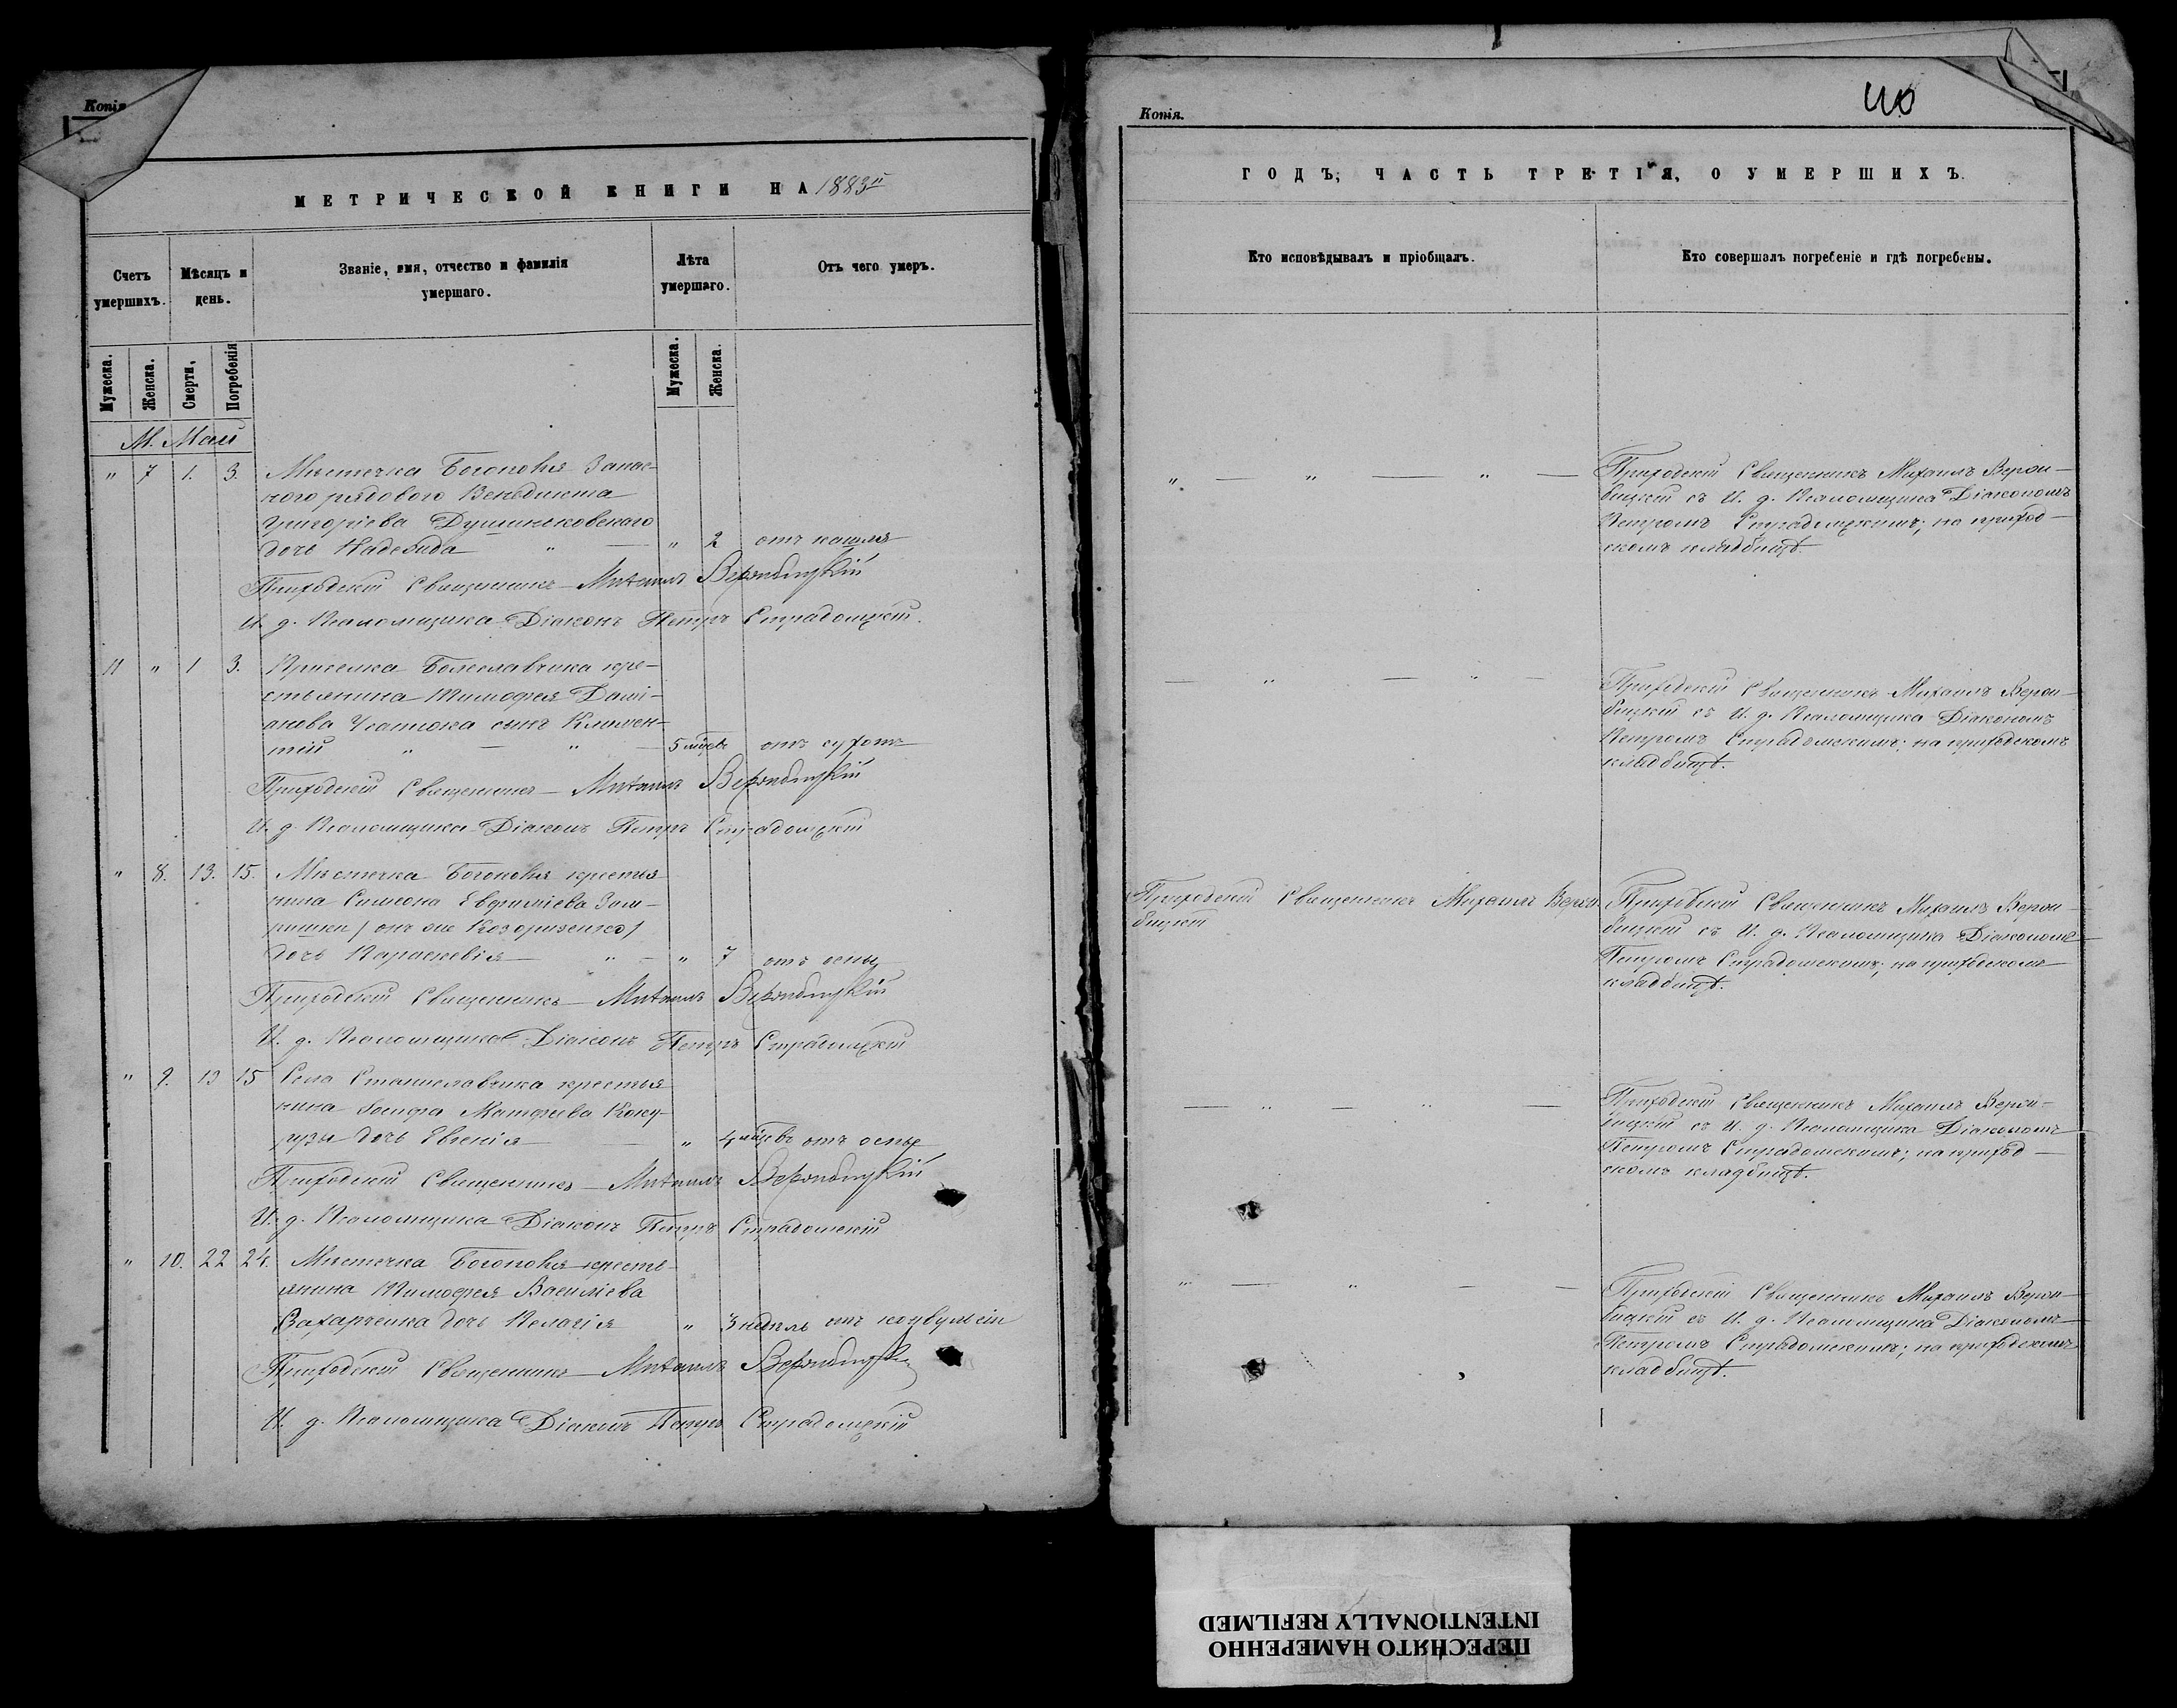 Копія
МЕТРИЧЕСКОЙ КНИГИ НА 1883й
Счетъ умершихъ.
Мѣсяцъ и день.
Званіе, имя, отчество и фамилія умершаго.
Лѣта умершаго.
Отъ чего умеръ.
Мужеска.
Женска.
Смерти,
Погребенія
Мужеска.
Женска.
М. Май
" 7 1. 3. Мѣстечка Богополя Запас-
ного рядового Венедикта
Григоріева
дочь Надежда " — " 2 отъ кашля
Приходскій Священникъ Михаилъ
И. д. Псаломщика Діаконъ Петръ Страдомскій.
11 " 1 3. Приселка Болеславчика кре-
стьянина Тимофея Дамі-
анова Усатюка сынъ Климен-
тій " — " — 5 мѣсцевъ отъ сухотъ
Приходскій Священникъ Михаилъ
И. д. Псаломщика Діаконъ Петръ Страдомскій
" 8. 13. 15. Мѣстечка Богополя крестья
нина Симеона Евфиміева
/ онъ же /
дочь Параскевія " — " 7 отъ оспы
Приходскій Священникъ Михаилъ
И. д. Псаломщика Діаконъ Петръ Страдомскій
" 9. 13 15 Села Станиславчика крестья
нина Іосифа Матфеева Куку-
рузы дочь Евгенія — " 4 мѣсцевъ отъ оспы
Приходскій Священникъ Михаилъ
И. д. Псаломщика Діаконъ Петръ Страдомскій
" 10. 22 24. Мѣстечка Богополя кресть-
янина Тимофея Василіева
Захарченка дочь Пелагія " 3 недѣль отъ конвульсіи
Приходскій Священникъ Михаилъ
И. д. Псаломщика Діаконъ Петръ Страдомскій
Копія.
ГОДЪ; ЧАСТЬ ТРЕТІЯ, О УМЕРШИХЪ.
Кто исповѣдывалъ и пріобщалъ.
Кто совершалъ погребеніе и гдѣ погребены.
" — " — " —
Приходскій Священникъ Михаилъ
съ И. д. Псаломщика Діакономъ
Петромъ Страдомскимъ; на приход-
скомъ кладбищѣ.
— " — " —
Приходскій Священникъ Михаилъ
съ И. д. Псаломщика Діакономъ
Петромъ Страдомскимъ; на приходскомъ
кладбищѣ.
Приходскій Священникъ Михаилъ
Приходскій Священникъ Михаилъ
съ И. д. Псаломщика Діакономъ
Петромъ Страдомскимъ; на приходскомъ
кладбищѣ.
— " — " —
Приходскій Священникъ Михаилъ
съ И. д. Псаломщика Діакономъ
Петромъ Страдомскимъ; на приход-
скомъ кладбищѣ.
" — " — —
Приходскій Священникъ Михаилъ
съ И. д. Псаломщика Діакономъ
Петромъ Страдомскимъ; на приходскомъ
кладбищѣ.
ПЕРЕСНЯТО НАМЕРЕННО
INTENTIONALLY REFILMED